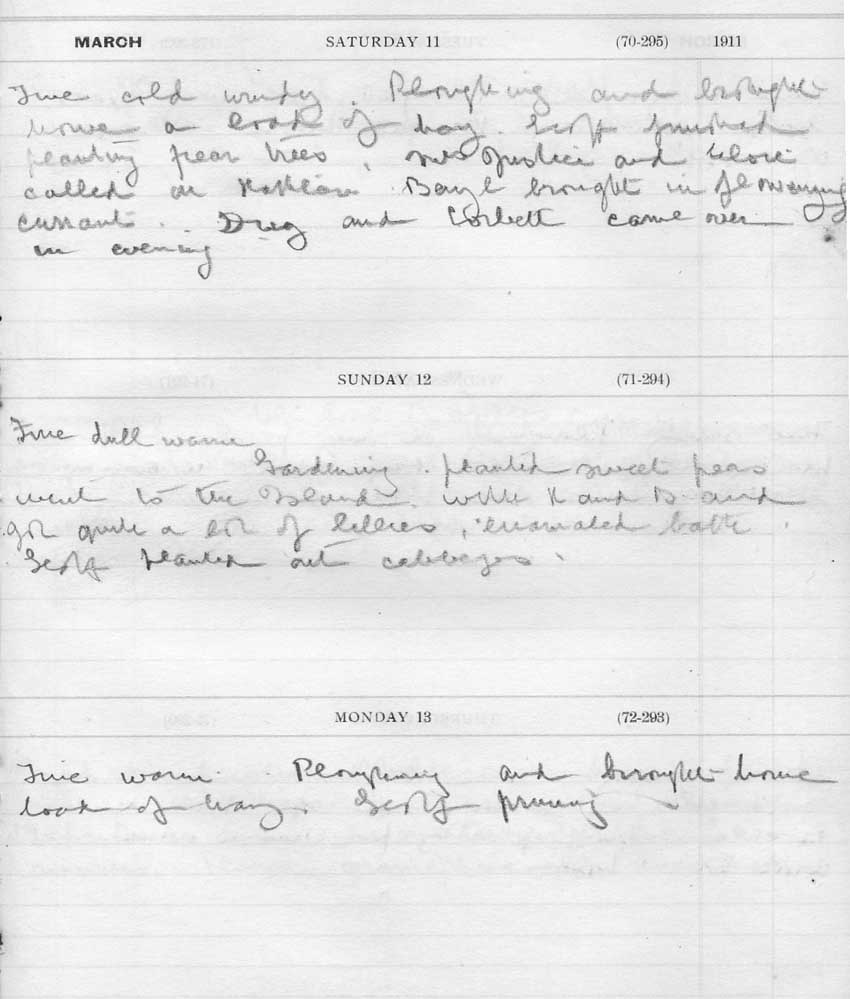 MARCH SATURDAY 11 (70-295) 1911
Fine cold windy. Ploughing and brought
home a load of hay. Geoff finished
planting pear trees, Mrs and
called on Kathleen Basyl brought in flowering
currant. and Corbett came over
in evening
SUNDAY 12 (71-294)
Fine dull warm
Gardening. planted sweet peas
went to the Island with K and B and
got quite a lot of lillies,
Geoff planted out cabbages.
MONDAY 13 (72-293)
Fine warm. Ploughing and brought home
load of hay. Geoff pruning